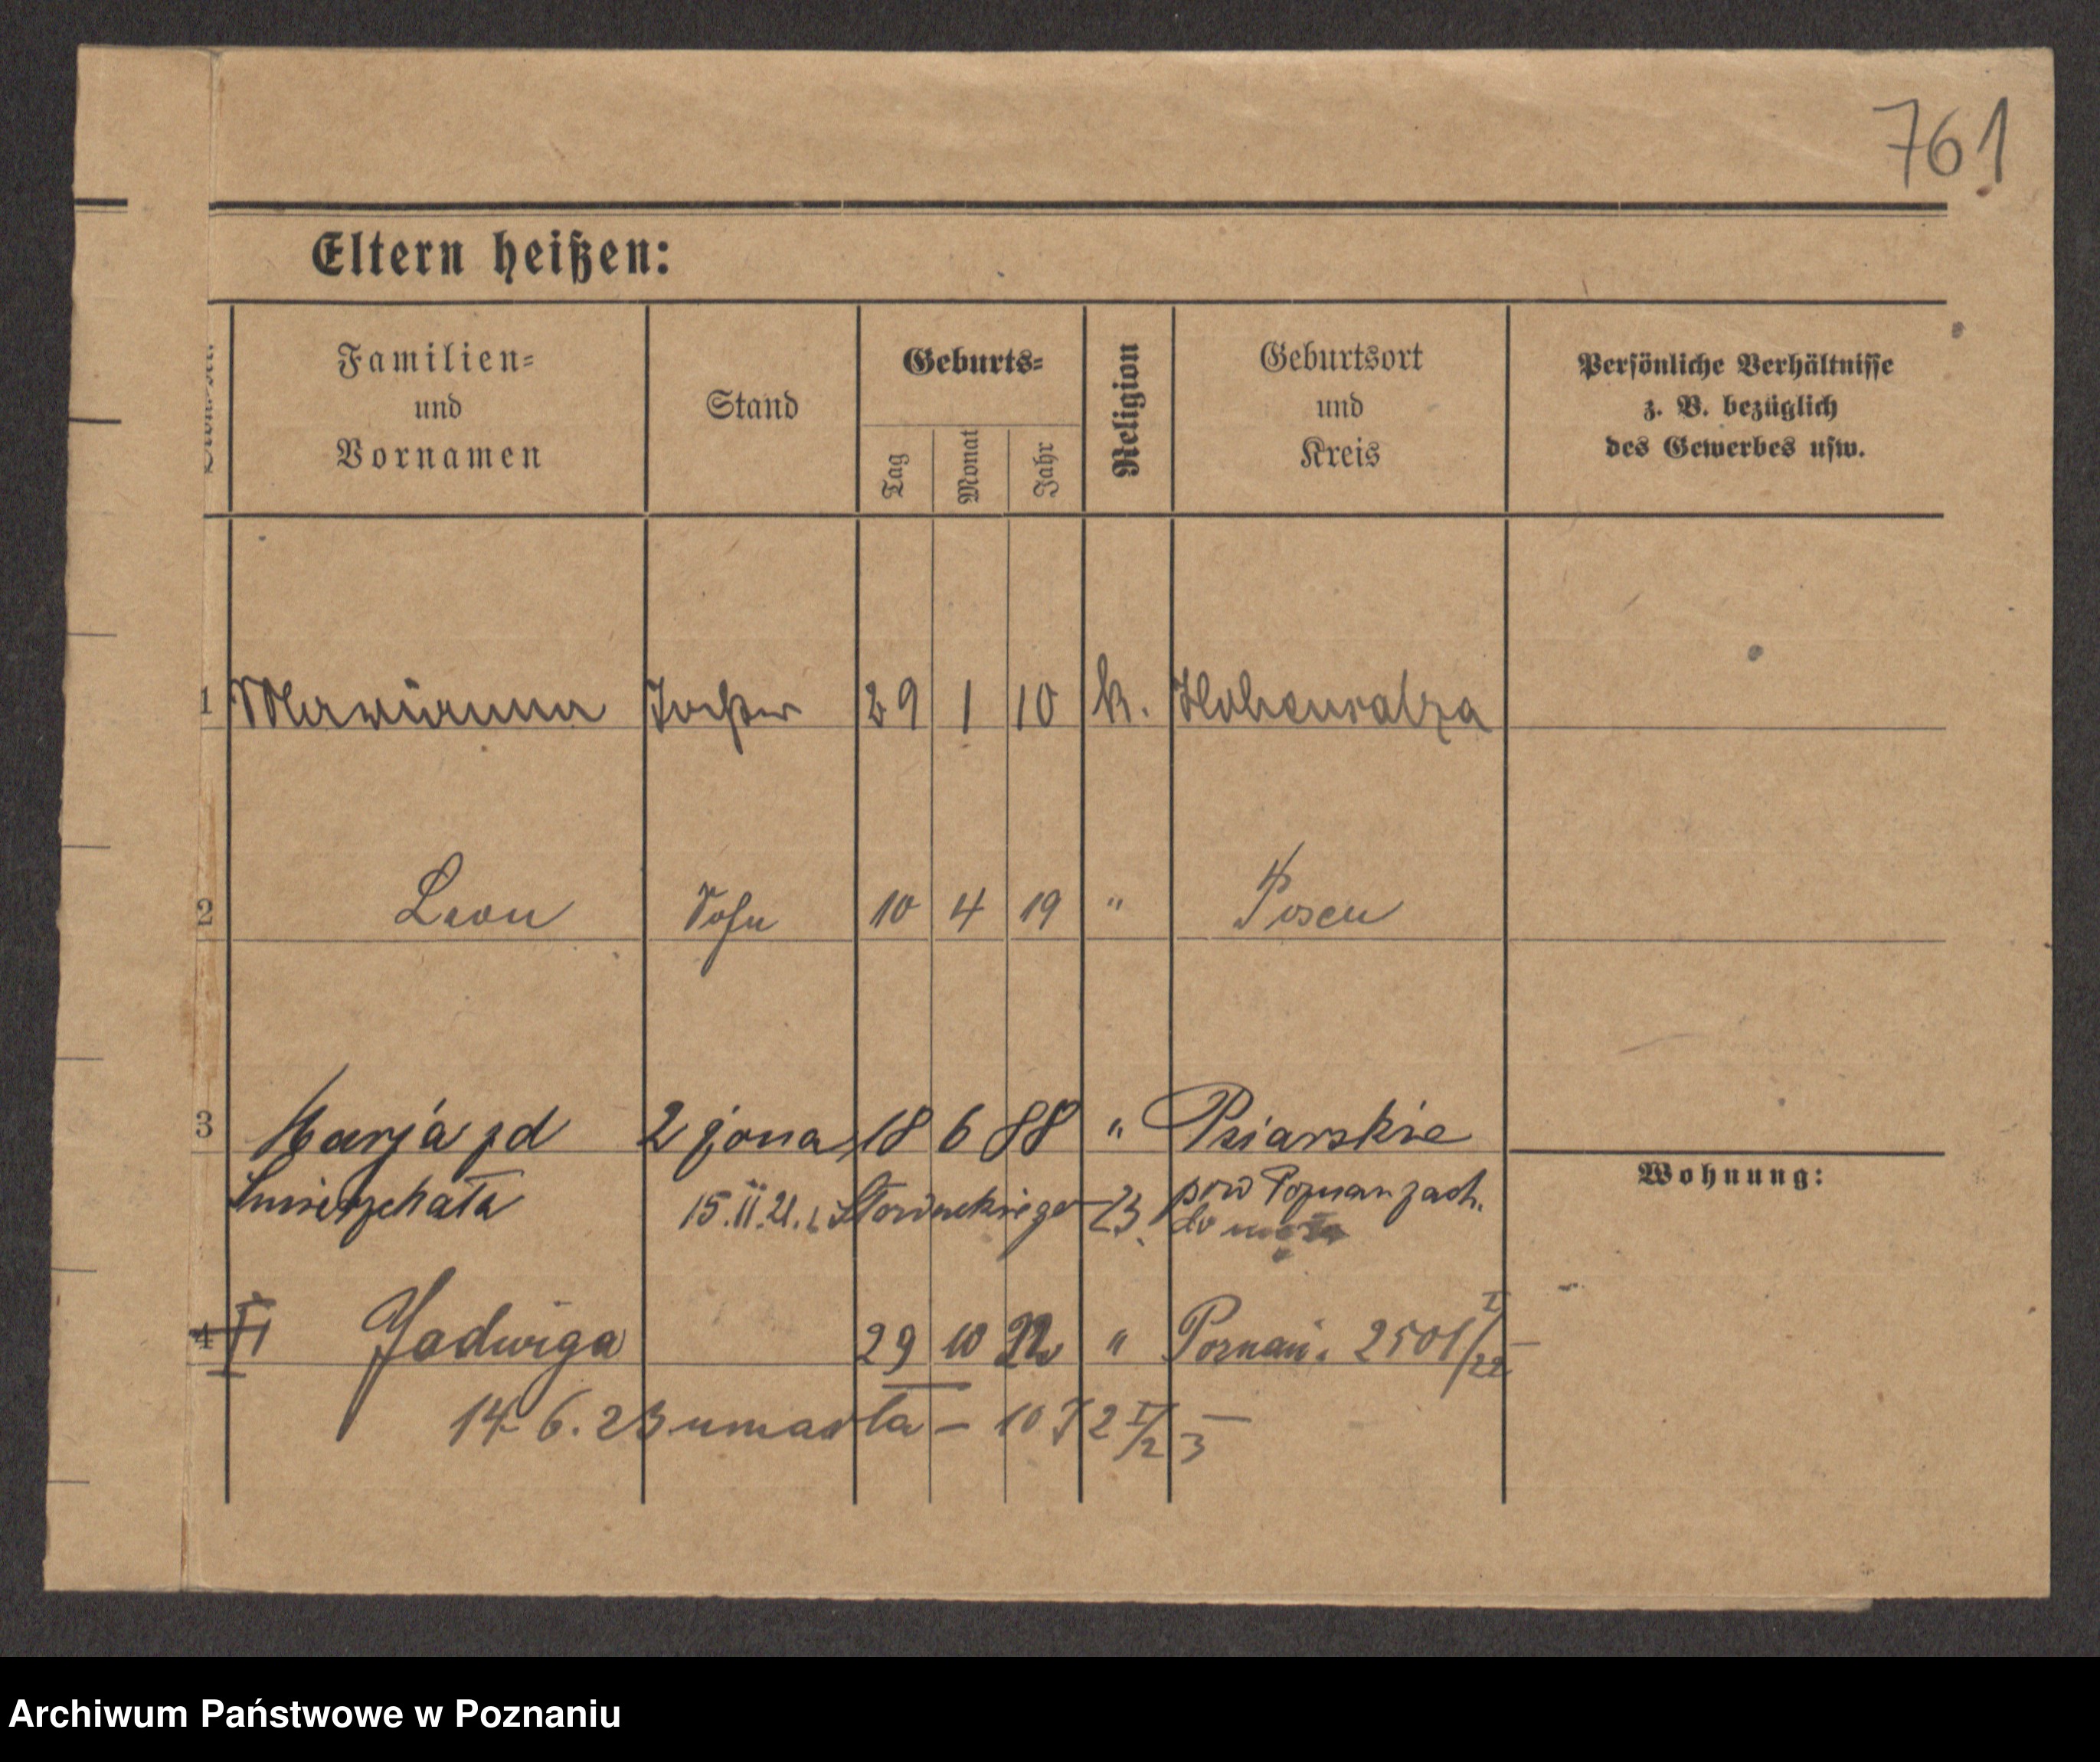 761
Eltern heißen:
Familien-
und
Vornamen
Stand
Geburts-
Tag
Monat
Jahr
Religion
Geburtsort
und
Kreis
Persönliche Verhältnisse
z. B. bezüglich
des Gewerbes usw.
1 Marianna Tochter 29 1 10 k. Hohensalza
2 Leon Sohn 10 4 19 " Posen
3 Marja zd 2 żona 18 6 88 " Psiarskie
15.II.21. 23. pow Poznan zach.
do męża
Wohnung:
4 VI Jadwiga 29 10 22 " Poznań. 2501 I/22 —
14.6.23 umarła — 1072 I/23 —
Archiwum Państwowe w Poznaniu